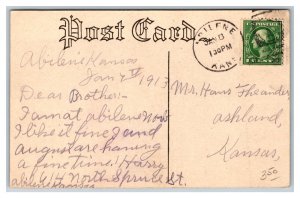 Post Card
ABILENE
JAN 13
130PM
KANS.
1 CENT 1
Abilene Kansas
Jan 1913
Dear Brother:-
I am at abilene now
I like it fine, and
august are haveing
a fine time. Harry
abilene Kansas 614 North Spruce St.
Mr. Hans
ashland,
Kansas,
350